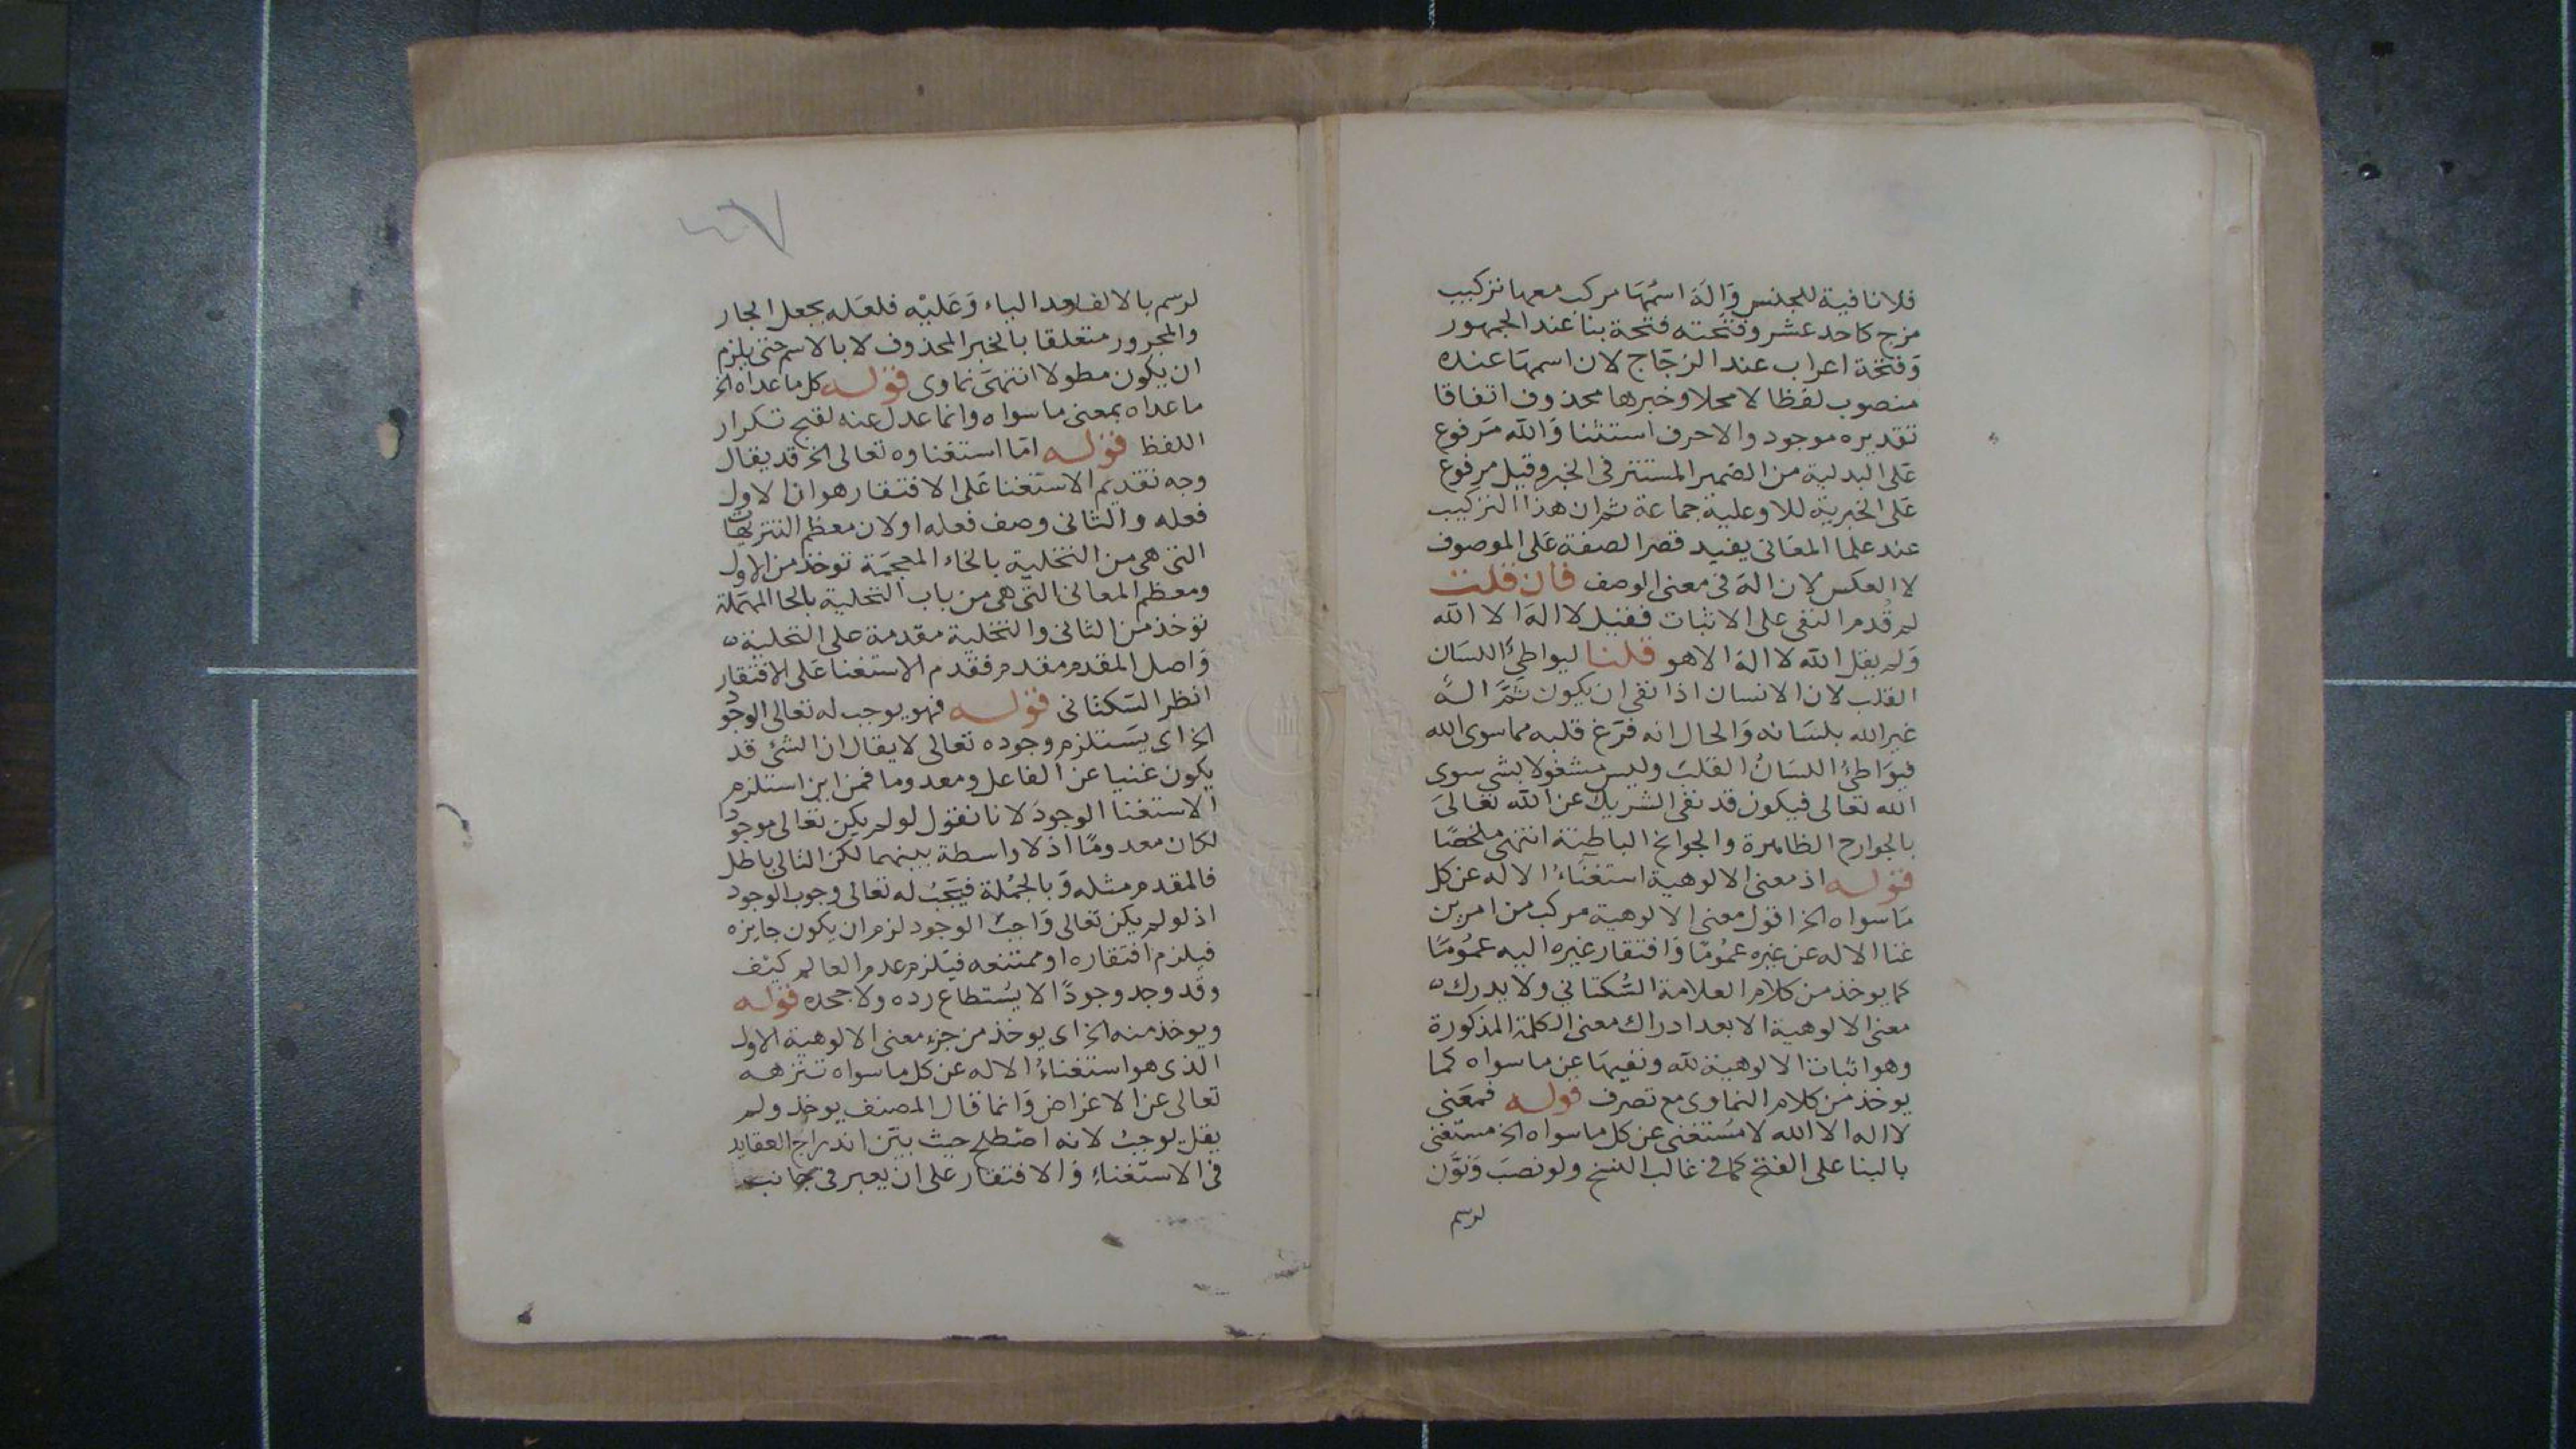 فلا نافية للجنس وَالهَ اسمُهَا مركب معها تركيب
مزج كاحد عشر وفتحته فتحة بنا عند الجمهور
وَفتحة اعراب عند الزجّاج لان اسمهَا عنده
منصوب لفظا لا محلا وخبرها محذوف اتفاقا
تقديره موجود والا حرف استثنا وَالله مَرفوع
عَلى البدلية من الضمير المستتر فى الخبر وقيل مرفوع
عَلى الخبرية للا وعليه جماعة ثم ان هذا التركيب
عند علما المعَانى يفيد قصر الصفة عَلى الموصوف
لا العكس لان الهَ فى معنى الوصف فان قلت
لم قُدم النفى على الاثبات فقيل لا الهَ الا الله
وَلم يقل الله لا اله الا هو قلنا ليواطئَ اللسَان
القلب لان الانسان اذا نفى ان يكون ثَمَّ الهٌ
غير الله بلسَانه وَالحال انه فرّغ قلبه مما سوى الله
فيوَاطئُ اللسَانُ القلبَ وليس مشغولا بشى سوى
الله تعالى فيكون قد نفى الشريك عن الله تعالىَ
بالجوارح الظاهرة والجوانح الباطنة انتهى ملخصًا
قوله اذ معنى الالوهية استغنَاءُ الاله عن كل
مَا سواه الخ اقول معنى الالوهية مركب من امرين
غنا الاله عن غيره عمُومًا وَافتقار غيره اليه عمُومًا
كما يوخذ من كلام العلامة السُّكتاني ولا يدرك
معنى الالوهية الا بعد ادراك معنى الكلمة المذكورة
وهو اثبات الالوهية لله ونفيهَا عن ما سواه كما
يوخذ من كلام النماوى مع تصرف قوله فمعَنى
لا اله الا الله لا مُستغنى عن كل ما سواه الخ مستغنى
بالبنا على الفتح كما فى غالب النسخ ولو نصبَ وَنوَّن
لرسم
٤٧
لرسم بالالف بعد الياء وَعَليْه فلعَله يجعل الجار
والمجرور متعلقا بالخبر المحذوف لا بالاسم حتى يلزم
ان يكون مطولا انتهىَ نماوى قوله كل ما عداه الخ
ما عداه بمعنى ما سواه وانما عدل عنه لقبح تكرار
اللفظ قوله امّا استغناوه تعالى الخ قد يقال
وجه تقديم الاستغنا عَلى الافتقار هو ان الاول
فعله والثانى وصف فعله او لان معظم التنزيهات
التى هى من التخلية بالخاء المعجمَة توخذ من الاول
ومعظم المعانى التى هى من باب التحلية بالحا المهمَلة
توخذ من الثانى والتخلية مقدمة على التحلية
وَاصل المقدم مقدم فقدم الاستغنا عَلى الافتقار
انظر السَكتانى قوله فهو يوجب له تعالى الوجود
الخ اى يسَتلزم وجوده تعالى لا يقال ان الشئ قد
يكون غنيا عن الفاعل ومعدوما فمن اين استلزم
الاستغنا الوجودَ لانا نقول لو لم يكن تعالى موجودا
لكان معدومًا اذ لا واسطة بينهما لكن التالى باطل
فالمقدم مثله وَبالجمُلة فيَجبُ له تعالى وجوب الوجود
اذ لو لم يكن تعالى وَاجبَ الوجود لزم ان يكون جايزه
فيلزم افتقاره او ممتنعه فيَلزم عدم العالم كيْف
وقد وجد وجودًا لا يسُتطاع رده ولا جحده قوله
ويوخذ منه الخ اى يوخذ من جزء معنى الالوهية الاول
الذى هو استغناءُ الاله عن كل ما سواه تنزهه
تعالى عن الاغراض وَانما قال المصنف يوخذ ولم
يقل يوجبُ لانه اصْطلح حيث بيّن اندراج العقايد
فى الاستغناءِ وَالافتقار على ان يعبر فى جانب